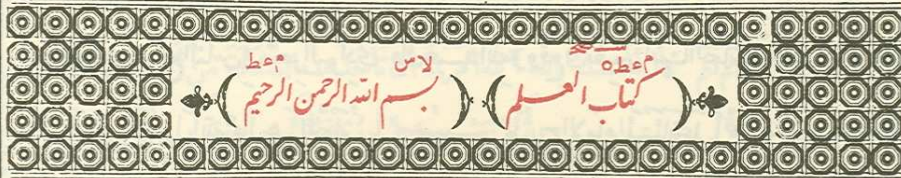 (كتاب العلم) (بسم الله الرحمن الرحيم)